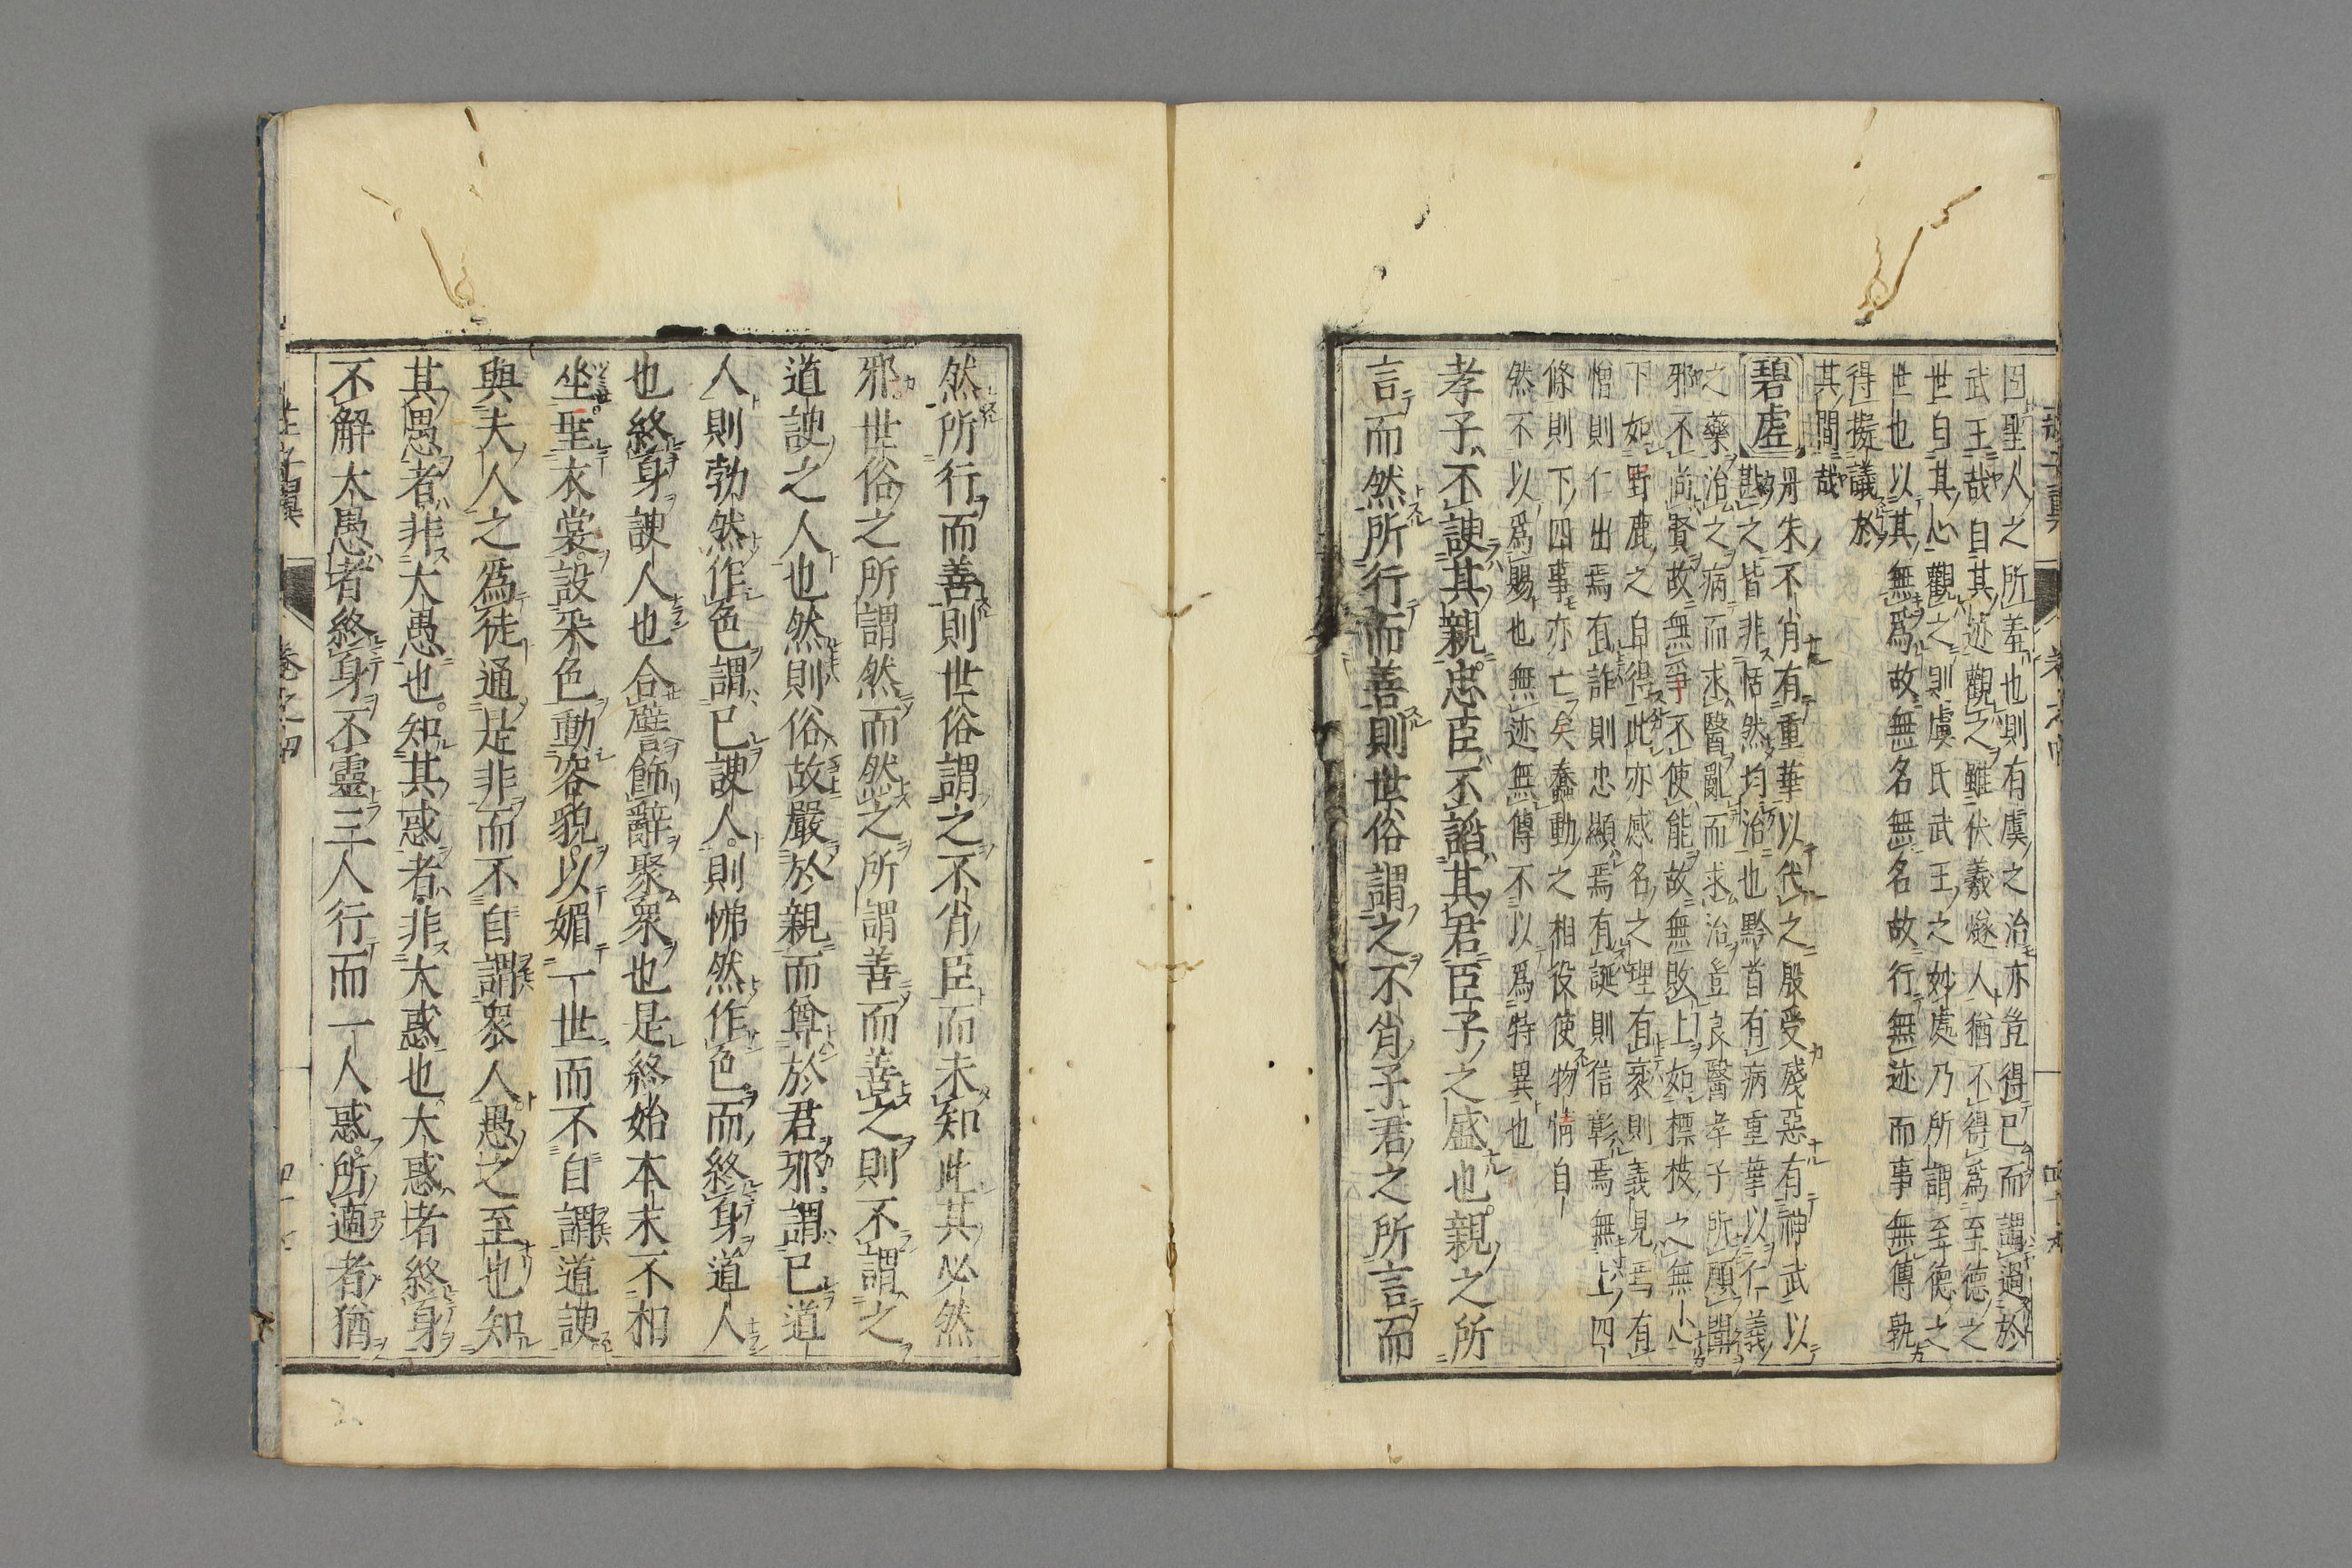 因聖人之所羞也則有虞之治亦豈得已而謂過於
武王哉自其迹觀之雖伏羲燧人猶不得爲至德之
世自其心觀之則虞氏武王之妙處乃所謂至德之
世也以其無爲故無名無名故行無迹而事無傳孰
得擬議於
其間哉
碧虛
丹朱不肖有重華以代之殷受殘惡有神武以
戡之皆非恬然均治也黔首有病重華以仁義
之藥治之病而求醫亂而求治豈良醫孝子所願聞
邪不尚賢故無爭不使能故無敗上如標枝之無心
下如野鹿之自得此亦感名之理有褒則義見焉有
憎則仁出焉有詐則忠顯焉有誕則信彰焉無上四
條則下四事亦亡矣蠢動之相役使物情自
然不以爲賜也無迹無傳不以爲特異也
孝子不諛其親忠臣不諂其君臣子之盛也親之所
言而然所行而善則世俗謂之不肖子君之所言而
然所行而善則世俗謂之不肖臣而未知此其必然
邪世俗之所謂然而然之所謂善而善之則不謂之
道諛之人也然則俗故嚴於親而尊於君邪謂已道
人則勃然作色謂已諛人則怫然作色而終身道人
也終身諛人也合譬飾辭聚衆也是終始本末不相
坐垂衣裳設采色動容貌以媚一世而不自謂道諛
與夫人之爲徒通是非而不自謂衆人愚之至也知
其愚者非大愚也知其惑者非大惑也大惑者終身
不解大愚者終身不靈三人行而一人惑所適者猶
莊子翼
卷之四